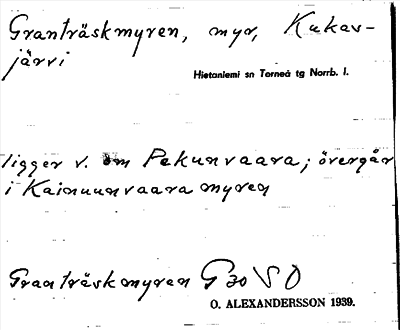 Granträskmyren, myr, Kukas-
järvi
Hietaniemi sn Torneå tg Norrb. l.
ligger v. om Pekunvaara; övergår
i Kainuunvaara myren
Granträskmyren G 30 V O
O. ALEXANDERSSON 1939.